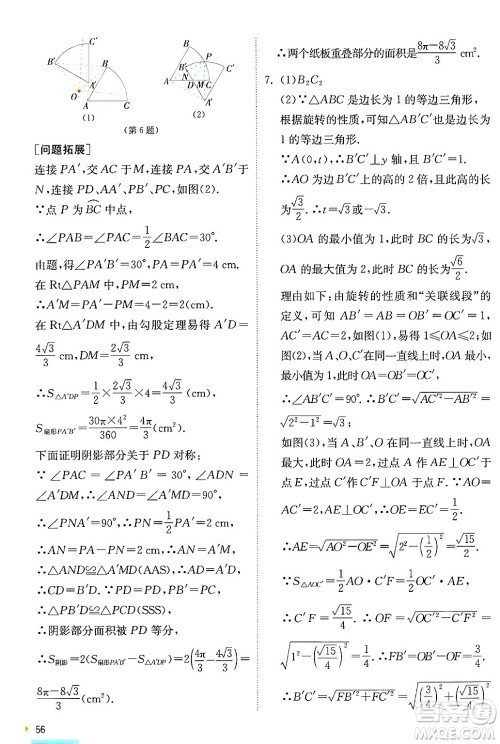 B C' B' C
B' P C'
O A' B N M C
D
A C A A'
(1) (2)
(第6题)
[问题拓展]
连接 PA′,交 AC 于 M,连接 PA,交 A′B′于
N,连接 PD、AA′、PB′、PC,如图(2).
∵点 P 为 BC⌢ 中点,
∴∠PAB=∠PAC=1/2∠BAC=30°.
由题,得∠PA′B′=∠PA′C=30°.
在 Rt△PAM 中,∴PM=2 cm,
∴A′M=PA′-PM=6-2=4(cm).
在 Rt△A′DM 中,由勾股定理,得 A′D=
4√3/3 cm,DM=2√3/3 cm,
∴S△A′DP=1/2×2√3/3×6=4√3/3,
S扇形PA′B′=30π×4²/360=4π/3.
下面证明阴影部分关于 PD 对称.
∵∠PAC=∠PA′B′=30°,
∴∠AND=∠A′MD=90°.
∴∠PNA′=90°,∴PN=1/2PA′=2 cm,
∴AN=PA-PN=4 cm,∴AN=A′M,
∴△AND≌△A′MD,∴AD=A′D,
∴△PAD≌△PA′D(SSS),
∴阴影部分面积被 PD 等分,
∴S阴影=2(S扇形PA′B′-S△A′DP)=2(4π/3-4√3/3)=
8π-8√3/3 cm².
∴两个纸板重叠部分的面积是8π-8√3/3 cm².
7. (1)B₂C₂
(2)∵△ABC 是边长为 1 的等边三角形,
根据旋转的性质,可知△AB′C′也是边长为
1 的等边三角形.
∵A(0,t),∴B′C′⊥y 轴,且 B′C′=1.
∴AO 为 B′C′边上的高的 2 倍,且此高的
长为√3/2,∴t=√3或-√3.
(3)OA 的最小值为 1 时,此时 BC 的长为√3;
OA 的最大值为 2,此时 BC 的长为√6/2.
理由如下:由旋转的性质和“关联线段”的
定义,可知 AB=AB′=OB′=OC′=1,
AC=AC′,如图(2),易得 1≤OA≤2.
∴当 A、B′、O 不在同一直线上时,OA=1,
∴∠AB′C′=90°,∴B′C′=√AC′²-AB′²=
√2²-1²=√3;
如图(3),当 A、B′、O 在同一直线上时,OA
有最大值,OA=2,过点 A 作 AE⊥OC′于
点 E,过点 C′作 C′F⊥OA 于点 F.
∵AO=AC′=2,AE⊥OC′,∴OE=EC′=1/2,
∴AE=√AO²-OE²=√2²-(1/2)²=√15/4.
∵S△AOC′=1/2AO·C′F=1/2OC′·AE,
∴C′F=√15/4,∴OF=√OC′²-C′F²=
√1²-(√15/4)²=1/4,∴FB′=OB′-OF=3/4,
∴B′C′=√FB′²+FC′²=√(3/4)²+(√15/4)²
56
作业帮答案